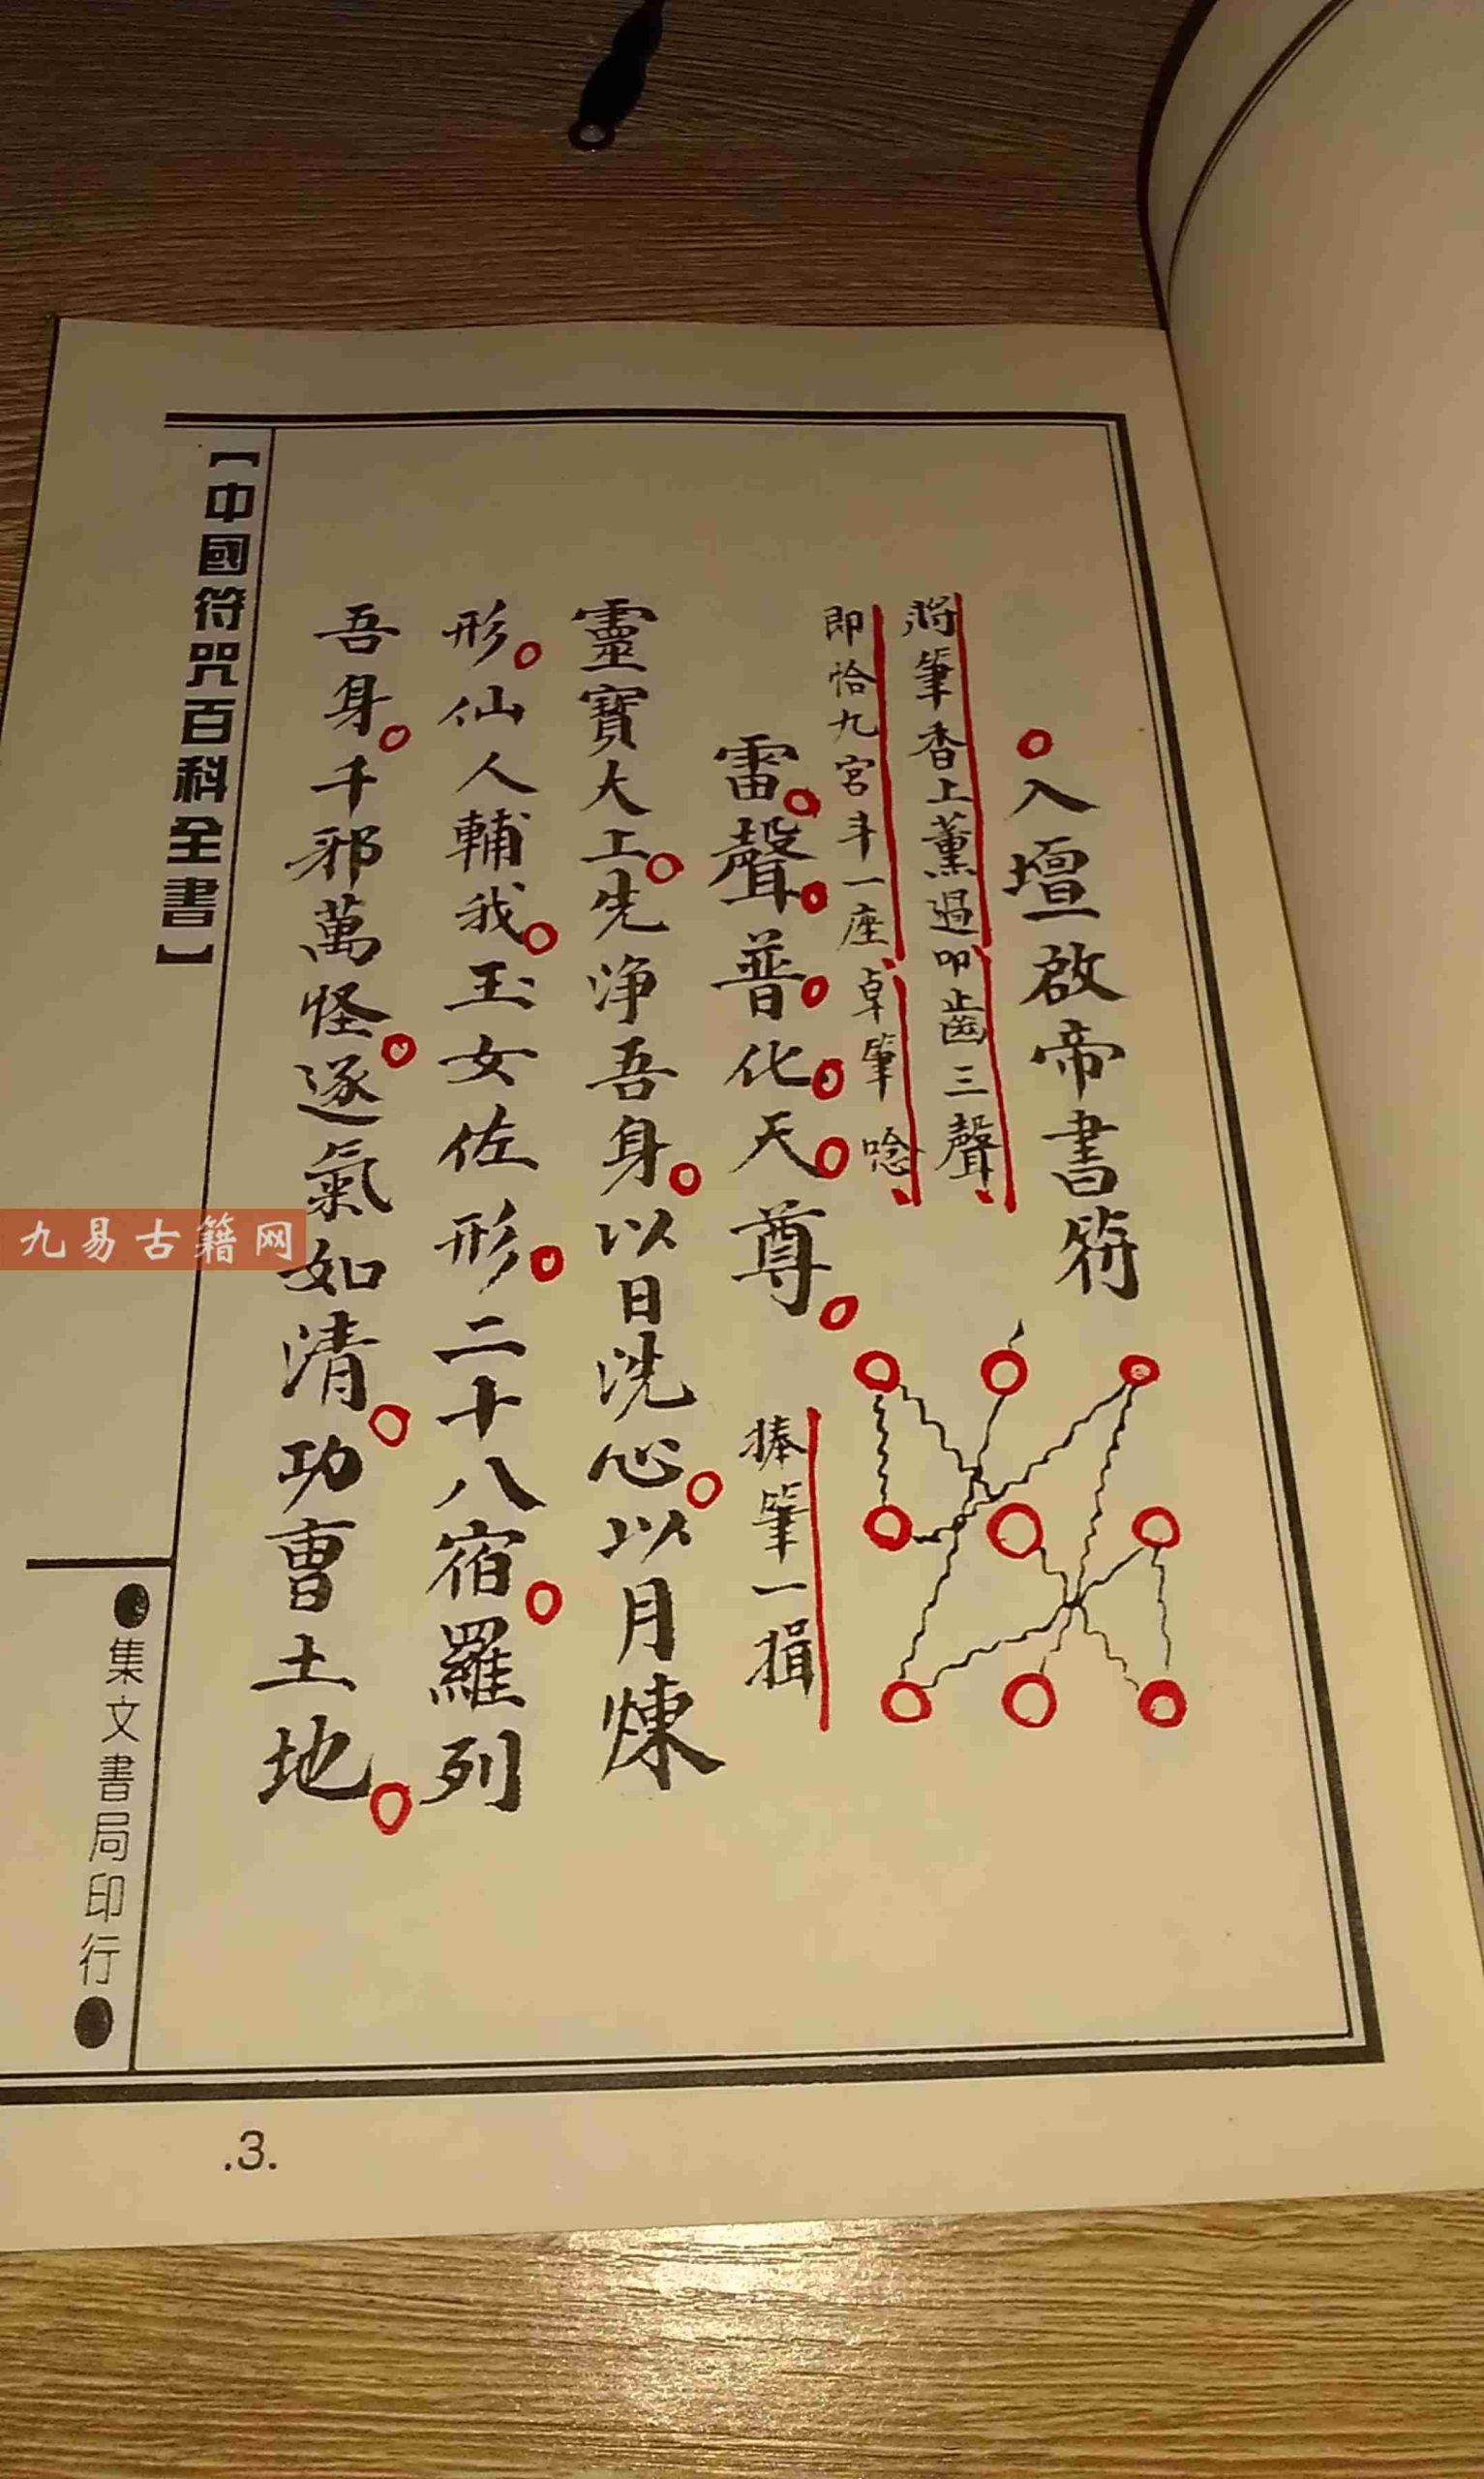 入壇啟帝書符
將筆香上薰過叩齒三聲
即恰九宮斗一座卓筆唸
雷聲普化天尊
捧筆一揖
靈寶大上先淨吾身以日洗心以月煉
形仙人輔我玉女佐形二十八宿羅列
吾身千邪萬怪逐氣如清功曹土地
【中國符咒百科全書】
●集文書局印行●
.3.
九易古籍网